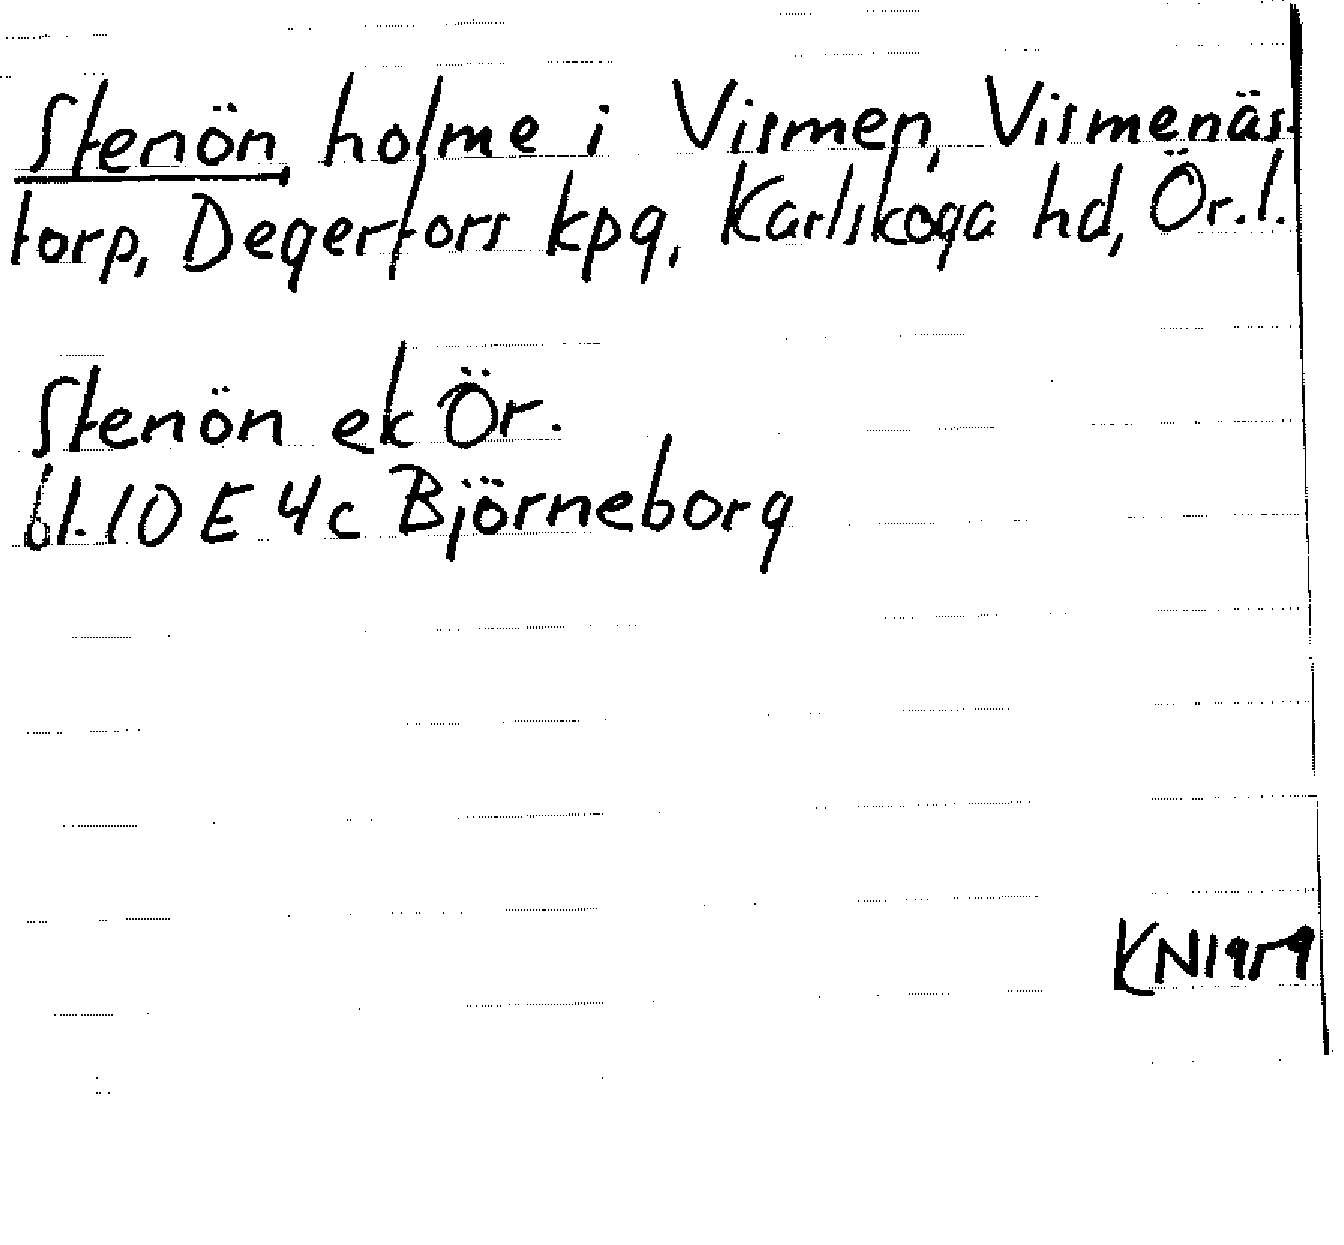 Stenön, holme i Vismen, Vismenäs-
torp, Degerfors kpg, Karlskoga hd, Ör.l.
Stenön ek Ör.
61.10 E 4c Björneborg
KN1959